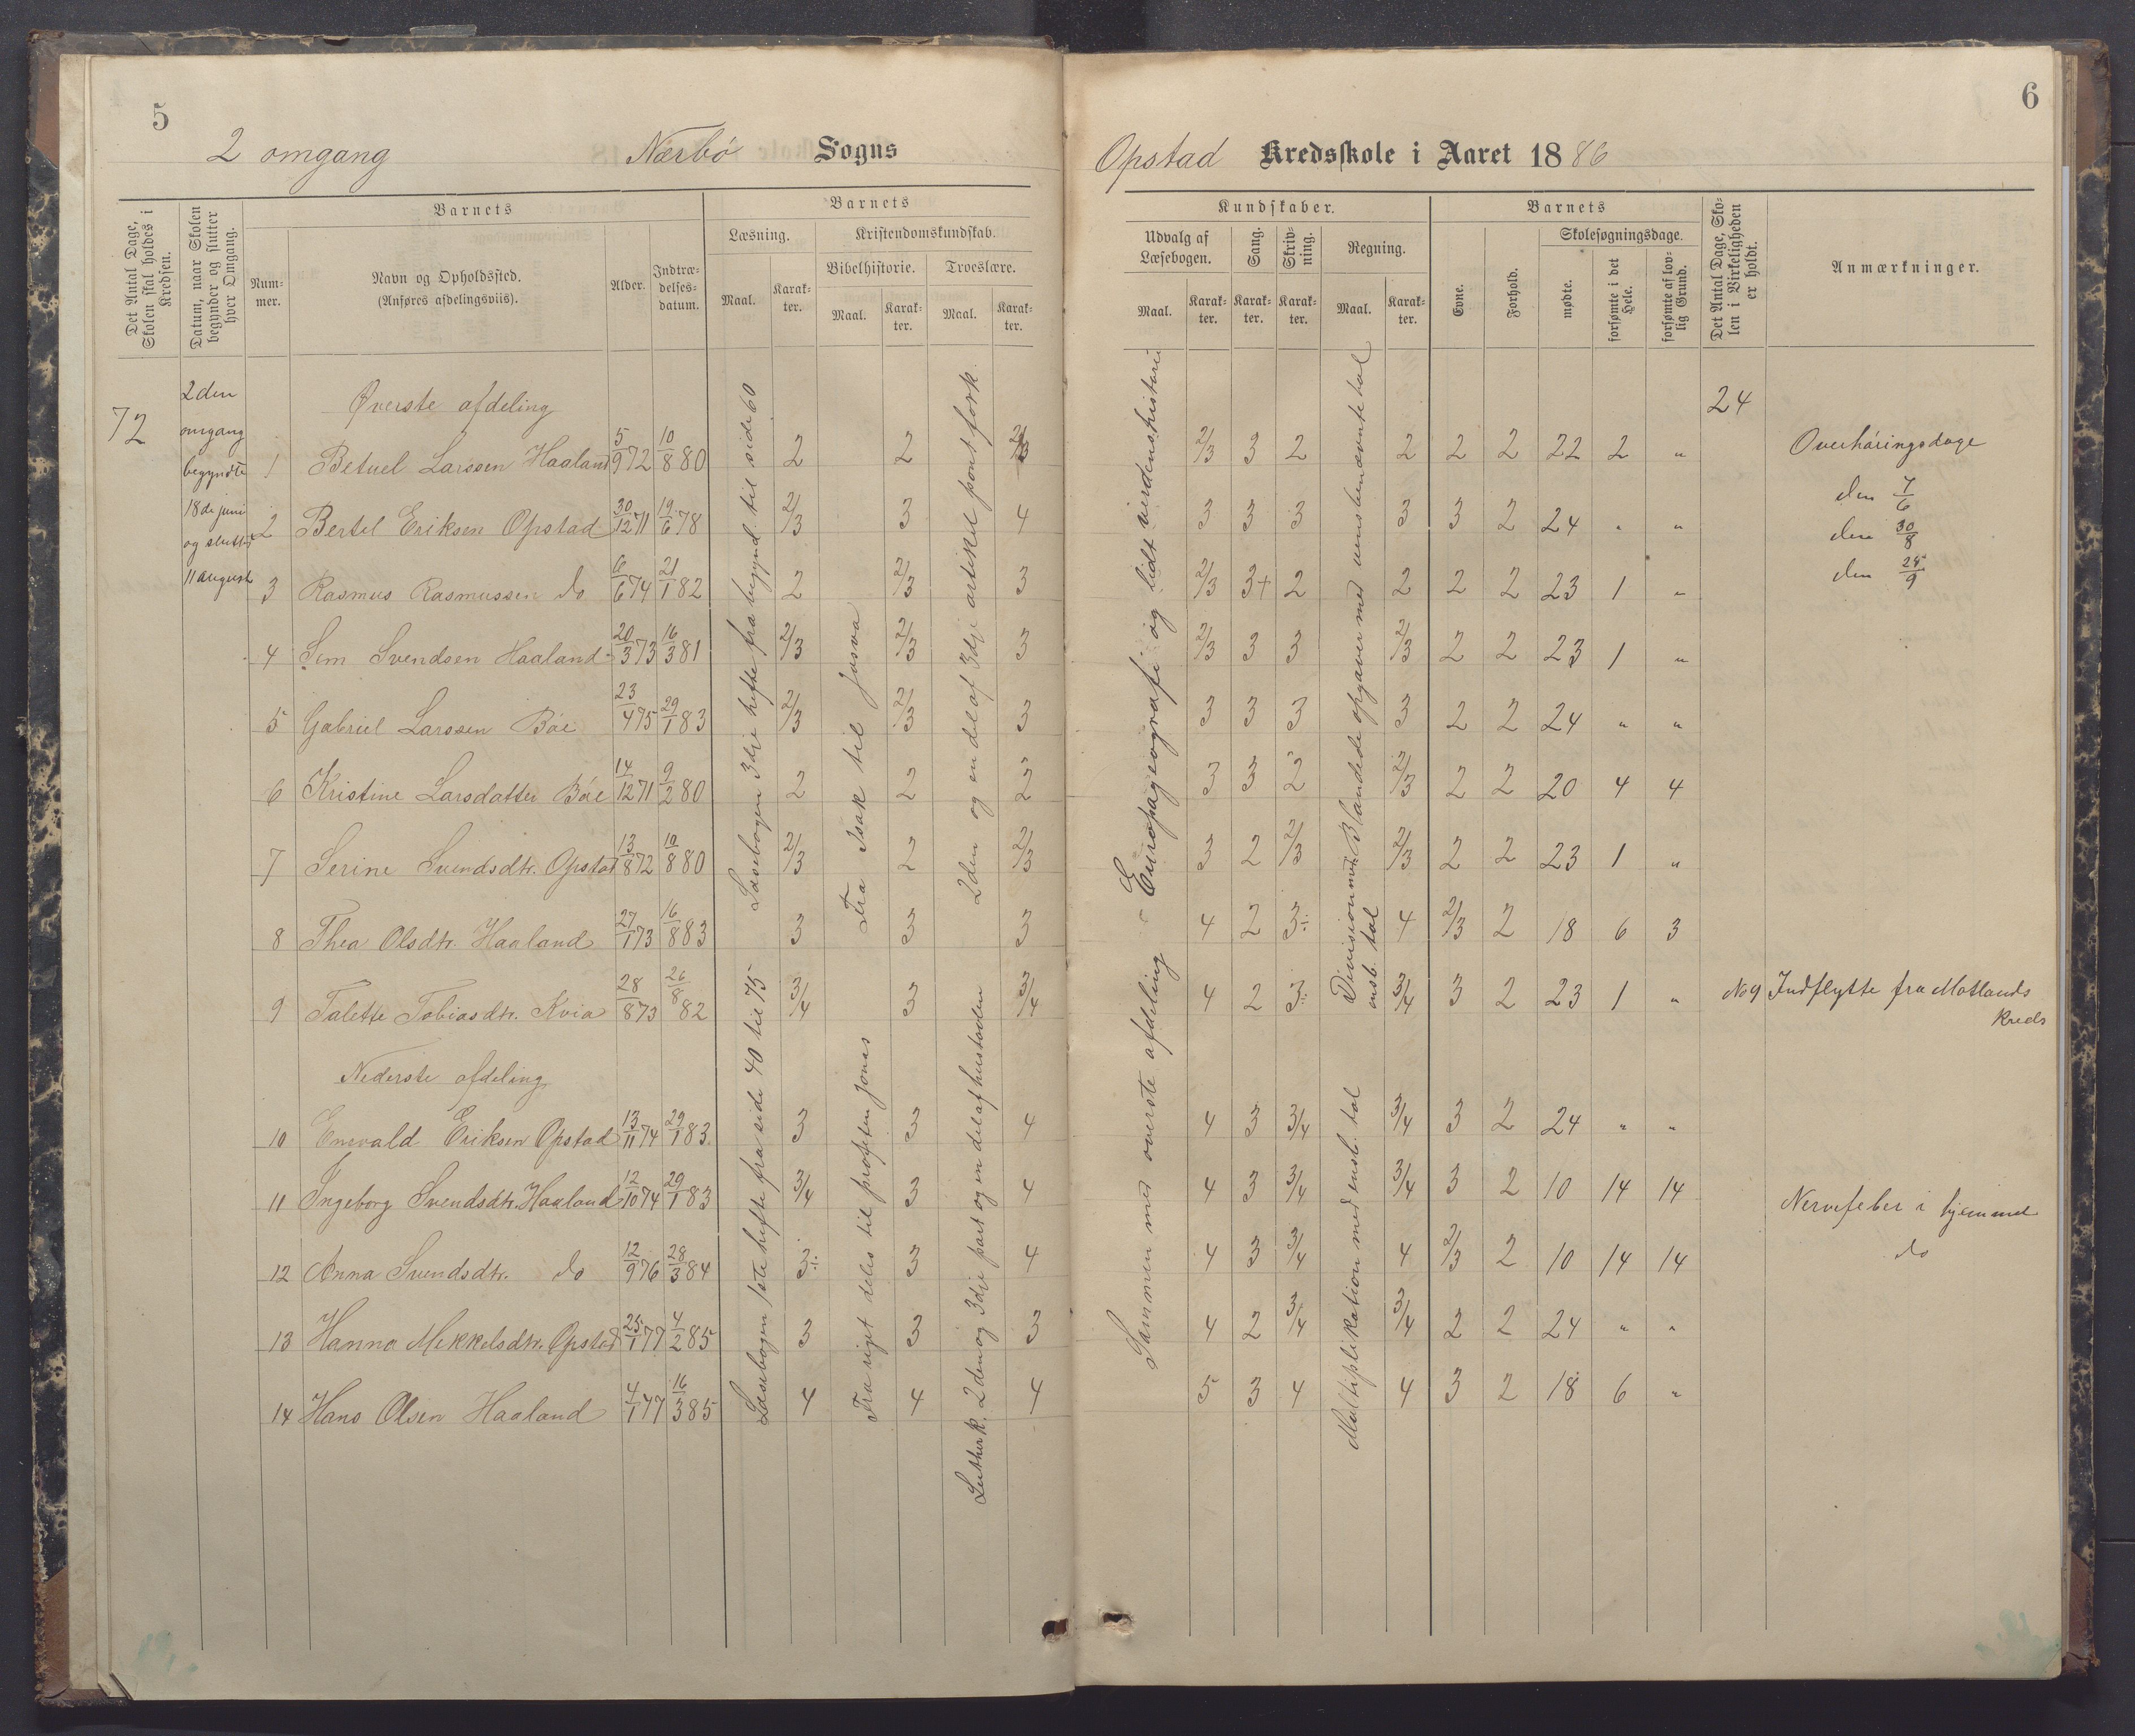 5
2 omgang Nærbö Sogns
Det Antal Dage, Skolen skal holdes i Kredsen.
Datum, naar Skolen begynder og slutter hver Omgang.
Barnets
Num-mer.
Navn og Opholdssted.
(Anføres afdelingsviis).
Alder.
Indtræ-delses-datum.
Barnets
Læsning.
Kristendomskundskab.
Bibelhistorie. Troeslære.
Maal. Karak-ter. Maal. Karak-ter. Maal. Karak-ter.
72
2den
omgang
begyndte
18de juni
og sluttet
11 august
Øverste afdeling
1 Betuel Larssen Haaland 5/9 72 10/8 80 2 2 2/3
2 Bertel Eriksen Opstad 30/12 71 19/6 78 2/3 3 4
3 Rasmus Rasmussen do 6/6 74 21/1 82 2 2/3 3
4 Sem Svendsen Haaland 20/3 73 16/3 81 2/3 2/3 3
5 Gabriel Larssen Böe 23/4 75 29/1 83 2/3 2/3 3
6 Kristine Larsdatter Böe 14/12 71 9/2 80 2 2 2
7 Serine Svendsdtr. Opstad 13/8 72 10/8 80 2/3 2 2/3
8 Thea Olsdtr. Haaland 27/1 73 16/8 83 3 3 3
9 Talette Tobiasdtr. Kvia 28/8 73 26/8 82 3/4 3 3/4
Nederste afdeling
10 Enevald Eriksen Opstad 13/11 74 29/1 83 3 3 4
11 Ingeborg Svendsdtr. Haaland 12/10 74 29/1 83 3/4 3 4
12 Anna Svendsdtr. do 12/9 76 28/3 84 3÷ 3 4
13 Hanna Mikkelsdtr. Opstad 25/1 77 4/2 85 3 3 3
14 Hans Olsen Haaland 4/1 77 16/3 85 4 4 4
Læsebogen 3dje hefte fra begynd. til side 60
Læsebogen 1ste hefte fra side 40 til 75
Fra Isak til Josva
Fra riget deles til profeten Jonas
2den og en del af 3dje artikel pont fork.
Luther k. 2den og 3dje part og en del af hustavlen
6
Opstad Kredsskole i Aaret 1886
Kundskaber.
Udvalg af Læsebogen.
Sang.
Skriv-ning.
Regning.
Maal. Karak-ter. Karak-ter. Karak-ter. Maal. Karak-ter.
Barnets
Evne.
Forhold.
Skolesøgningsdage.
mødte.
forsømte i det Hele.
forsømte af lov-lig Grund.
Det Antal Dage, Sko-len i Virkeligheden er holdt.
Anmærkninger.
24
2/3 3 2 2 2 2 22 2 " Overhöringsdage
3 3 3 3 3 2 24 " " den 7/6
den 30/8
2/3 3+ 2 2 2 2 23 1 " den 25/9
2/3 3 3 2/3 2 2 23 1 "
3 3 3 3 2 2 24 " "
3 3 2 2/3 2 2 20 4 4
3 2 2/3 2/3 2 2 23 1 "
4 2 3÷ 4 2/3 2 18 6 3
4 2 3÷ 3/4 3 2 23 1 " No 9 Indflytte fra Motlands
Kreds
4 3 3/4 3/4 3 2 24 " "
4 3 3/4 3/4 3 2 10 14 14 Nervefeber i hjemmet
4 3 3/4 4 2/3 2 10 14 14 do
4 2 3/4 3/4 2 2 24 " "
5 3 4 4 3 2 18 6 "
Europageografi og lidt verdenshistorie
Sammen med överste afdeling
Blandede opgaver med uensbenævnte tal
Division med ensb. tal
Multiplikation med ensb. tal